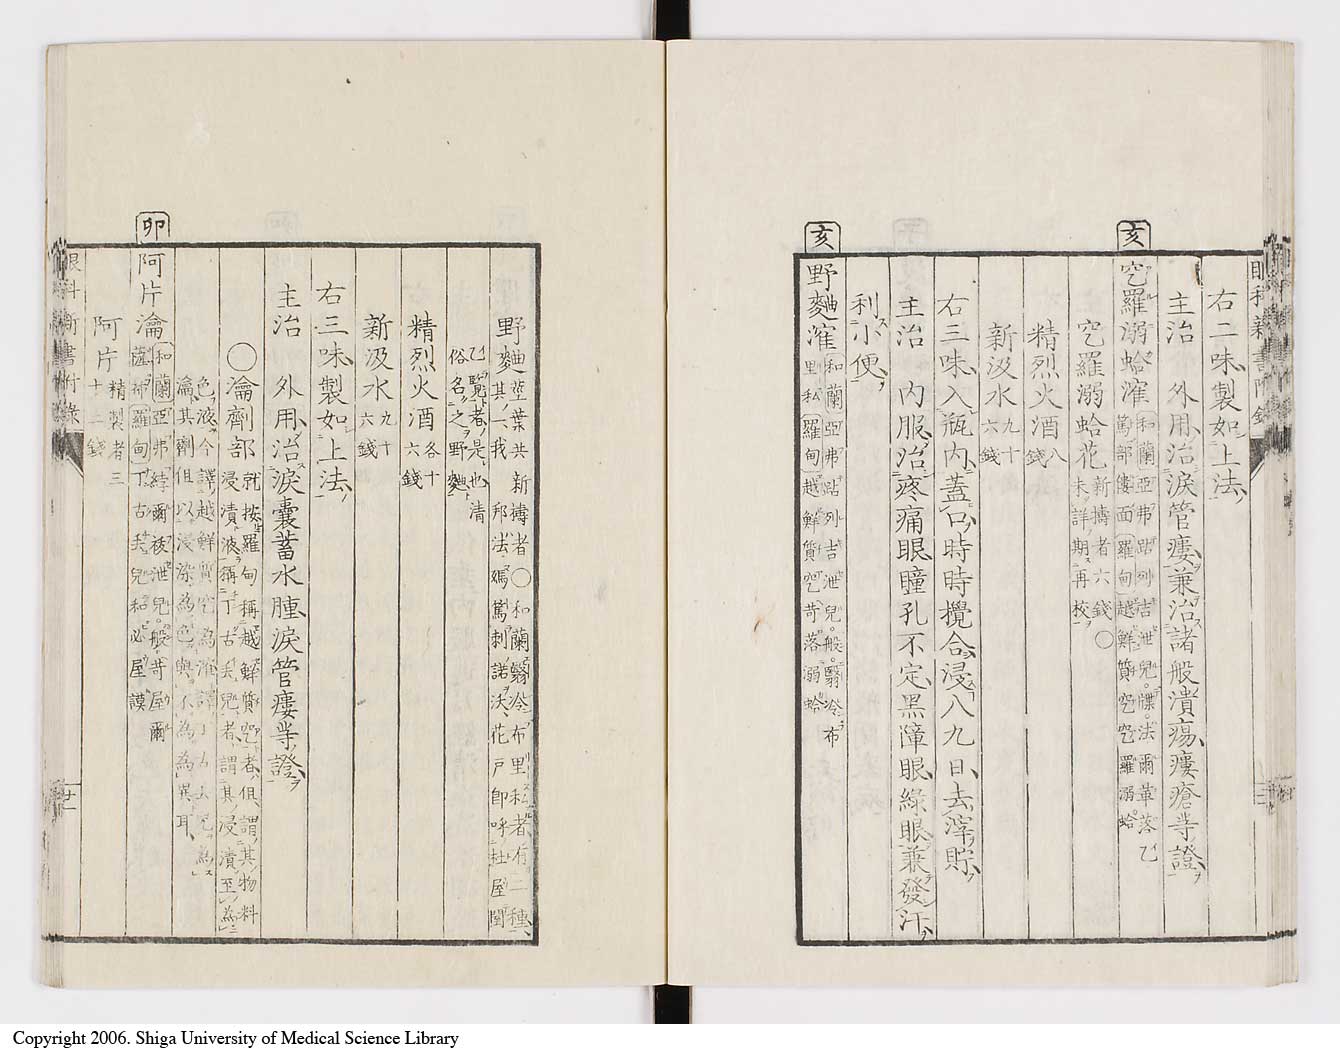 眼科新書附錄
右二味製如上法
主治 外用治淚管瘻兼治諸般潰瘍瘻瘡等證
亥
空羅溺蛤滝
空羅溺蛤花 新擣者六錢 ○
未詳期再校
精烈火酒 八錢
新汲水 九十六錢
右三味入瓶內蓋口時時攪合浸八九日去滓貯
主治 內服治疼痛眼瞳孔不定黑障眼綠眼兼發汗
利小便
亥
野麯滝 和蘭亞弗跕列吉泄兒般翳冷布
里私羅甸越鮮質空苛落溺蛤
野麯 莖葉共新擣者○和蘭翳冷布里私者有二種
其一我邦法嫣篤刺諾沃花戶即呼杜屋闔
乙鷖者是也清
俗名之野麯
精烈火酒 各十六錢
新汲水 九十六錢
右三味製如上法
主治 外用治淚囊蓄水腫淚管瘻等證
○瀹劑部 就按羅甸稱越鮮質空者但謂其物料
浸漬液稱丁古丢兒者謂其浸漬至為
色液今譯越鮮質空為滝譯丁古丢兒為
瀹其劑但以浸滌為色與不為為異耳
卯
阿片瀹 和蘭亞弗綍爾被泄兒般苛屋爾
薩布羅甸丁古丢兒私必屋謨
阿片 精製者三十二錢
眼科新書附錄
Copyright 2006. Shiga University of Medical Science Library